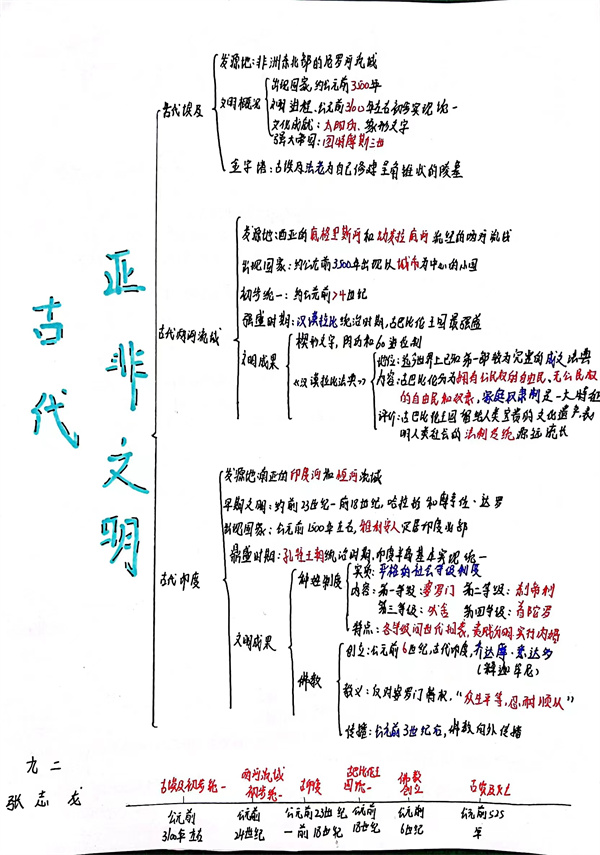 古代
亚非文明
古代埃及
发源地:非洲东北部的尼罗河流域
文明概况
出现国家:约公元前3500年
文明进程:公元前3100年左右初步实现统一
文化成就:太阳历、象形文字
强大帝国:图特摩斯三世
金字塔:古埃及法老为自己修建呈角锥状的陵墓
古代两河流域
发源地:西亚的底格里斯河和幼发拉底河流经的两河流域
出现国家:约公元前3500年出现以城市为中心的小国
初步统一:约公元前24世纪
强盛时期:汉谟拉比统治时期,古巴比伦王国最强盛
文明成果
楔形文字,阴历和60进位制
《汉谟拉比法典》
地位:迄今世界上已知第一部较为完整的成文法典
内容:古巴比伦分为拥有公民权的自由民、无公民权
的自由民和奴隶,家庭奴隶制是一大特征
评价:古巴比伦王国留给人类宝贵的文化遗产表
明人类社会的法制传统源远流长
古代印度
发源地:南亚的印度河和恒河流域
早期文明:约前23世纪一前18世纪,哈拉帕和摩亨佐·达罗
出现国家:公元前1500年左右,雅利安人定居印度北部
鼎盛时期:孔雀王朝统治时期,印度半岛基本实现统一
文明成果
种姓制度
实质:严格的社会等级制度
内容:第一等级:婆罗门 第二等级:刹帝利
第三等级:吠舍 第四等级:首陀罗
特点:各等级间世代相袭,贵贱分明,实行内婚
佛教
创立:公元前6世纪,古代印度,乔达摩·悉达多
(释迦牟尼)
教义:反对婆罗门特权,“众生平等,忍耐顺从”
传播:公元前3世纪左,佛教向外传播
九二
张志龙
古埃及初步统一
公元前
3100年左右
两河流域
初步统一
公元前
24世纪
古印度
公元前23世纪
一前18世纪
古巴比伦王
国统一
公元前
18世纪
佛教
创立
公元前
6世纪
古埃及灭亡
公元前525
年